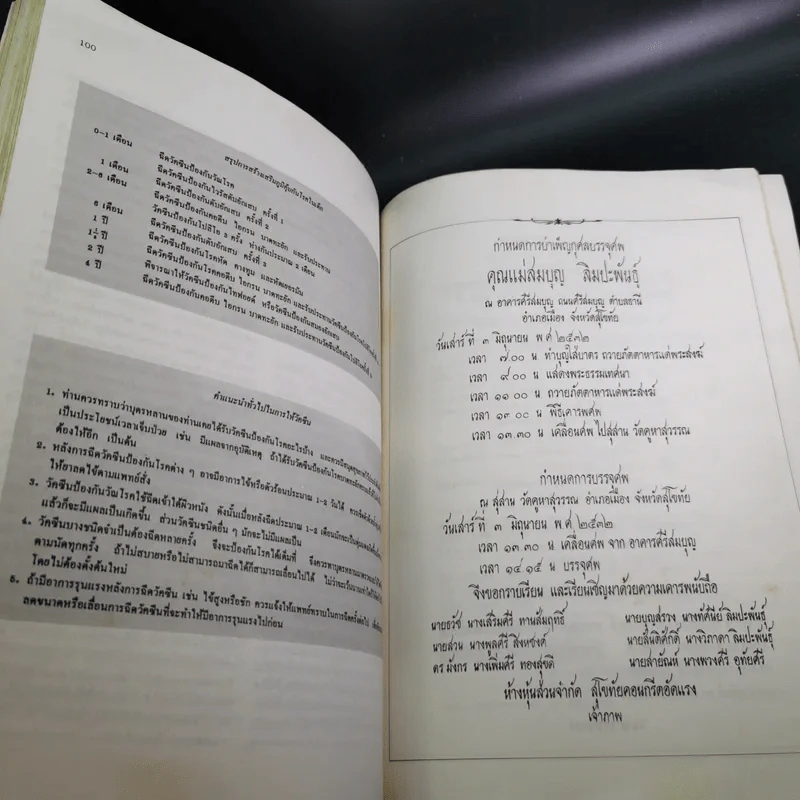 100
สรุปการสร้างเสริมภูมิคุ้มกันโรคในเด็ก
0-1 เดือน ฉีดวัคซีนป้องกันวัณโรค
1 เดือน ฉีดวัคซีนป้องกันไวรัสตับอักเสบ ครั้งที่ 1
2-6 เดือน ฉีดวัคซีนป้องกันตับอักเสบ ครั้งที่ 2
ฉีดวัคซีนป้องกันคอตีบ ไอกรน บาดทะยัก และรับประทาน
วัคซีนป้องกันโปลิโอ 3 ครั้ง ห่างกันประมาณ 2 เดือน
6 เดือน ฉีดวัคซีนป้องกันตับอักเสบ ครั้งที่ 3
1 ปี ฉีดวัคซีนป้องกันโรคหัด คางทูม และหัดเยอรมัน
1½ ปี ฉีดวัคซีนป้องกันโรคคอตีบ ไอกรน บาดทะยัก และรับประทานวัคซีนป้องกันโปลิโอครั้งที่
2 ปี พิจารณาให้วัคซีนป้องกันไทฟอยด์ หรือวัคซีนป้องกันสมองอักเสบ
4 ปี ฉีดวัคซีนป้องกันคอตีบ ไอกรน บาดทะยัก และรับประทานวัคซีนป้องกันโปลิโอครั้งที่
คำแนะนำทั่วไปในการให้วัคซีน
1. ท่านควรทราบว่าบุตรหลานของท่านเคยได้รับวัคซีนป้องกันโรคอะไรบ้าง และควรมีสมุด
เป็นประโยชน์เวลาเจ็บป่วย เช่น มีแผลจากอุบัติเหตุ ถ้าได้รับวัคซีนป้องกันโรคบาดทะยัก
ต้องให้อีก เป็นต้น
2. หลังการฉีดวัคซีนป้องกันโรคต่าง ๆ อาจมีอาการไข้หรือตัวร้อนประมาณ 1-2 วันได้ ควร
ให้ยาลดไข้ตามแพทย์สั่ง
3. วัคซีนป้องกันวัณโรคใช้ฉีดเข้าใต้ผิวหนัง ดังนั้นเมื่อหลังฉีดประมาณ 1-2 เดือนมักจะเป็น
แล้วก็จะมีแผลเป็นเกิดขึ้น ส่วนวัคซีนชนิดอื่น ๆ มักจะไม่มีแผลเป็น
4. วัคซีนบางชนิดจำเป็นต้องฉีดหลายครั้ง จึงจะป้องกันโรคได้เต็มที่ จึงควรพาบุตรหลานมา
ตามนัดทุกครั้ง ถ้าไม่สบายหรือไม่สามารถมาฉีดได้ก็สามารถเลื่อนไปได้
โดยไม่ต้องตั้งต้นใหม่
5. ถ้ามีอาการรุนแรงหลังการฉีดวัคซีน เช่น ไข้สูงหรือชัก ควรแจ้งให้แพทย์ทราบในการฉีดครั้งต่อไป
ลดขนาดหรือเลื่อนการฉีดวัคซีนที่จะทำให้มีอาการรุนแรงไปก่อน
กำหนดการบำเพ็ญกุศลบรรจุศพ
คุณแม่สมบุญ ลิมปะพันธุ์
ณ อาคารคีรีสมบุญ ถนนคีรีสมบุญ ตำบลธานี
อำเภอเมือง จังหวัดสุโขทัย
วันเสาร์ ที่ ๓ มิถุนายน พ.ศ ๒๕๓๒
เวลา ๗.๐๐ น ทำบุญใส่บาตร ถวายภัตตาหารแด่พระสงฆ์
เวลา ๙.๐๐ น แสดงพระธรรมเทศนา
เวลา ๑๑.๐๐ น ถวายภัตตาหารแด่พระสงฆ์
เวลา ๑๓.๐๐ น พิธีเคารพศพ
เวลา ๑๓.๓๐ น เคลื่อนศพ ไปสุสาน วัดคูหาสุวรรณ
กำหนดการบรรจุศพ
ณ สุสาน วัดคูหาสุวรรณ อำเภอเมือง จังหวัดสุโขทัย
วันเสาร์ ที่ ๓ มิถุนายน พ.ศ ๒๕๓๒
เวลา ๑๓.๓๐ น เคลื่อนศพ จาก อาคารคีรีสมบุญ
เวลา ๑๔.๑๕ น บรรจุศพ
จึงขอกราบเรียน และเรียนเชิญมาด้วยความเคารพนับถือ
นายธวัช นางเสริมคีรี ทานสัมฤทธิ์ นายบุญสรวง นางทัศนีย์ ลิมปะพันธุ์
นายสวน นางพูลคีรี สิงหชงค์ นายสันติศักดิ์ นางวิภาดา ลิมปะพันธุ์
ดร มังกร นางเพิ่มคีรี ทองสุขดี นายสายัณห์ นางพวงคีรี อุทัยคีรี
ห้างหุ้นส่วนจำกัด สุโขทัยคอนกรีตอัดแรง
เจ้าภาพ